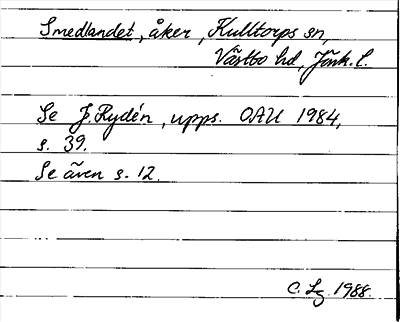 Smedlandet, åker, Kulltorps sn,
Västbo hd, Jönk. l.
Se J. Rydén, upps. OAU 1984,
s. 39.
Se även s. 12.
C. Lg. 1988.